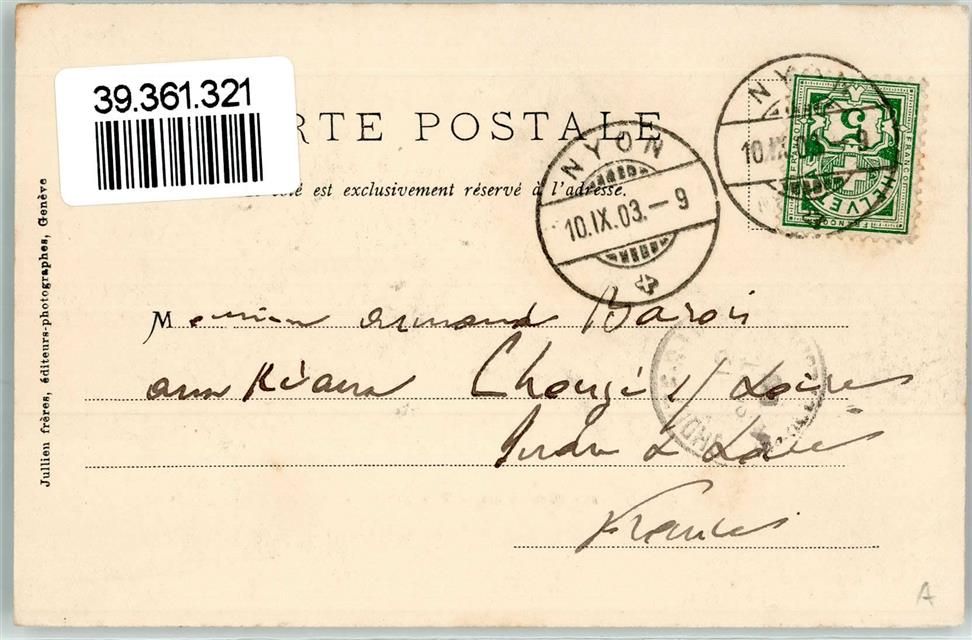 39.361.321
RTE POSTALE
té est exclusivement réservé à l'adresse.
NYON
10.IX.03.–9
NYON
10.IX.03 9
5
HELVETIA
FRANCO
Jullien frères, éditeurs-photographes, Genève
Monsieur Armand Barois
aux Réaux Chouzé s/ Loire
Indre & Loire
France
A